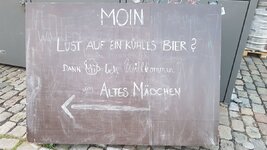 MOIN
LUST AUF EIN KÜHLES BIER?
DANN Willkommen
im ALTES MÄDCHEN